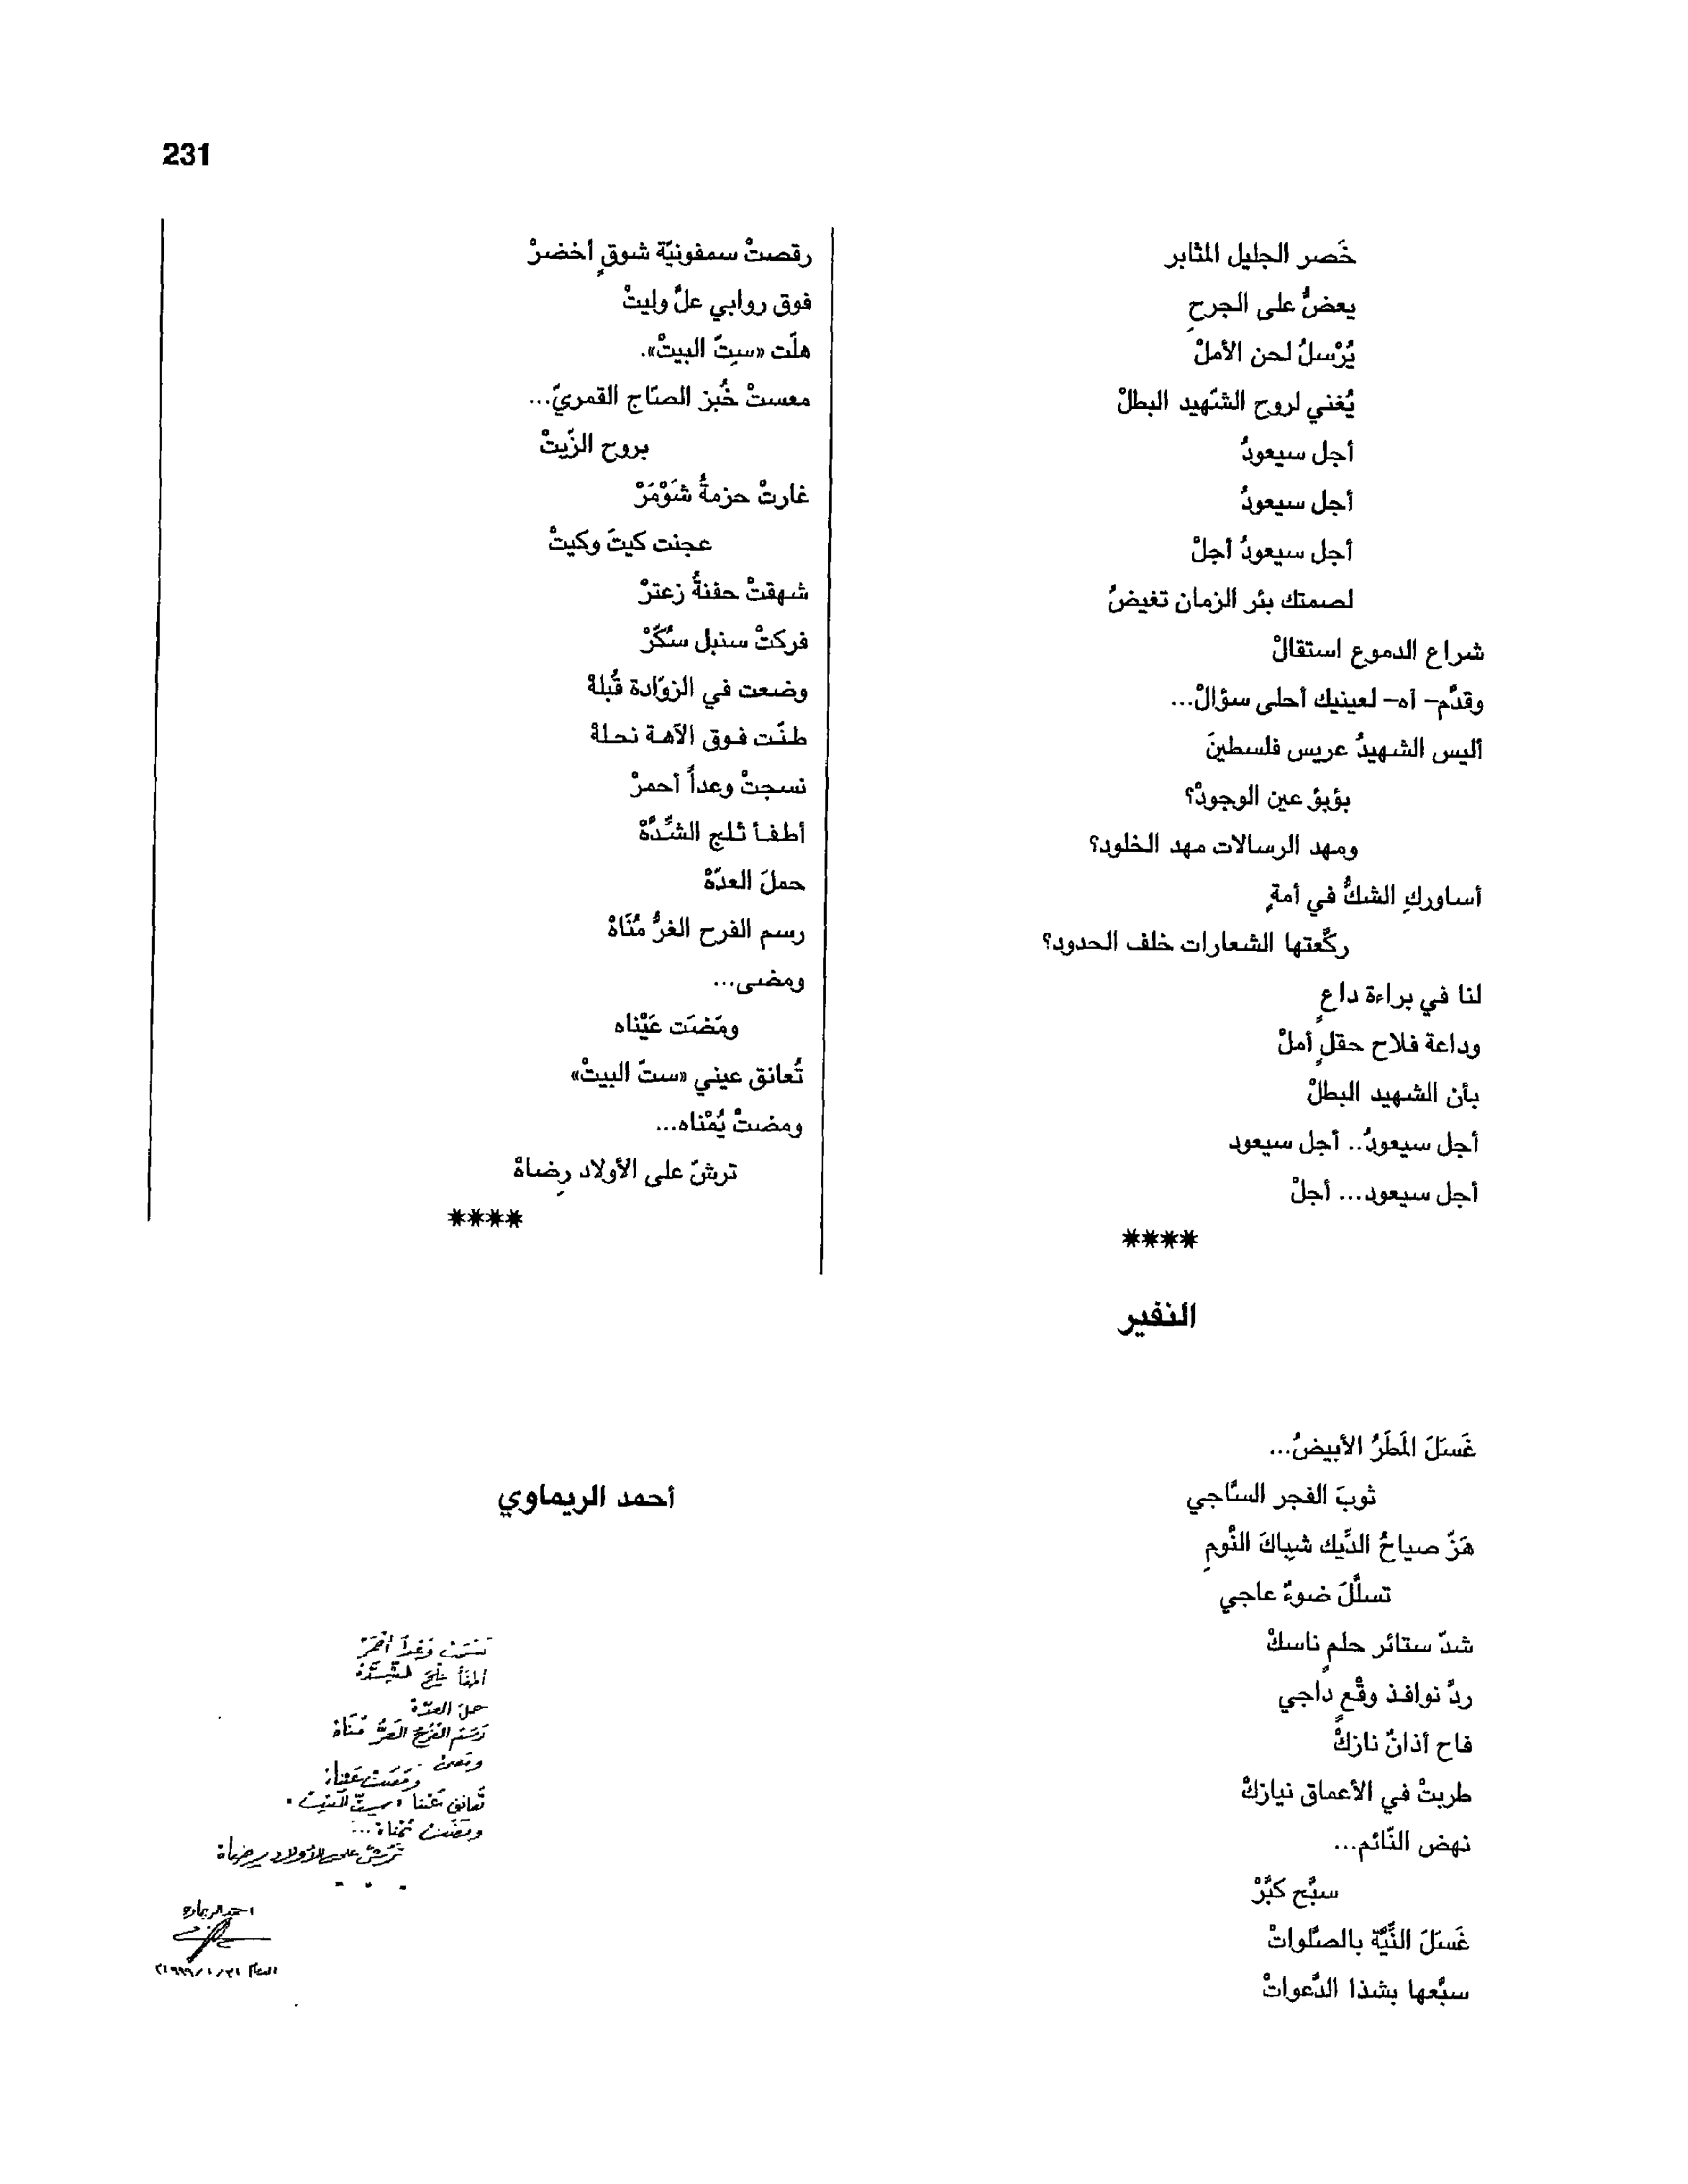 231
خَصر الجليل المثابر
يعضُّ على الجرحِ
يُرْسلُ لحن الأملْ
يُغني لروح الشّهيد البطلْ
أجل سيعودُ
أجل سيعودُ
أجل سيعودُ أجلْ
لصمتك بئر الزمان تغيضُ
شراع الدموع استقالْ
وقدَّم– آه– لعينيك أحلى سؤالْ...
أليس الشهيدُ عريس فلسطينَ
بؤبؤ عين الوجودْ؟
ومهد الرسالات مهد الخلود؟
أساوركِ الشكُّ في أمةٍ
ركَّعتها الشعارات خلف الحدود؟
لنا في براءة داعٍ
وداعة فلاح حقلٍ أملْ
بأن الشهيد البطلْ
أجل سيعودُ.. أجل سيعود
أجل سيعود... أجلْ
****
النفير
غَسَلَ المَطَرُ الأبيضُ...
ثوبَ الفجر السَّاجي
هَزّ صياحُ الدِّيك شباكَ النَّومِ
تسلَّلَ ضوءٌ عاجي
شدّ ستائر حلمٍ ناسكْ
ردَّ نوافذ وقْعٍ داجي
فاح أذانٌ نازكٌ
طربتْ في الأعماق نيازكْ
نهض النّائم...
سبَّح كبَّرْ
غَسَلَ النِّيَّة بالصَّلواتْ
سبَّعها بشذا الدَّعواتْ
رقصتْ سمفونيّة شوقٍ أخضرْ
فوق روابي علَّ وليتْ
هلّت «ستّ البيتْ».
معستْ خُبز الصّاج القمريّ...
بروح الزّيتْ
غارتْ حزمةُ شَوْمَرْ
عجنت كيتَ وكيتْ
شهقتْ حفنةُ زعترْ
فركتْ سنبل سُكّرْ
وضعت في الزوّادة قُبلةْ
طنّت فوق الآهة نحلةْ
نسجتْ وعداً أحمرْ
أطفأ ثلج الشّدَّةْ
حملَ العدّةْ
رسم الفرح الغرُّ مُنَاهْ
ومضى...
ومَضَت عَيْناه
تُعانق عيني «ستّ البيتْ»
ومضتْ يُمْناه...
ترشّ على الأولاد رِضاهْ
****
أحمد الريماوي
نسجت وَعْداً أحمَرْ
أطفأ ثلجَ الشّدَّة
حملَ العدّة
رَسَمَ الفرح الغرُّ مُنَاهْ
ومضى
ومَضَت عَيْناهْ
تُعانق عَيْنا «ستّ البيتْ».
ومضَت يُمْناهْ...
ترُشّ على الأولاد رضاهْ
احمد الريماوي